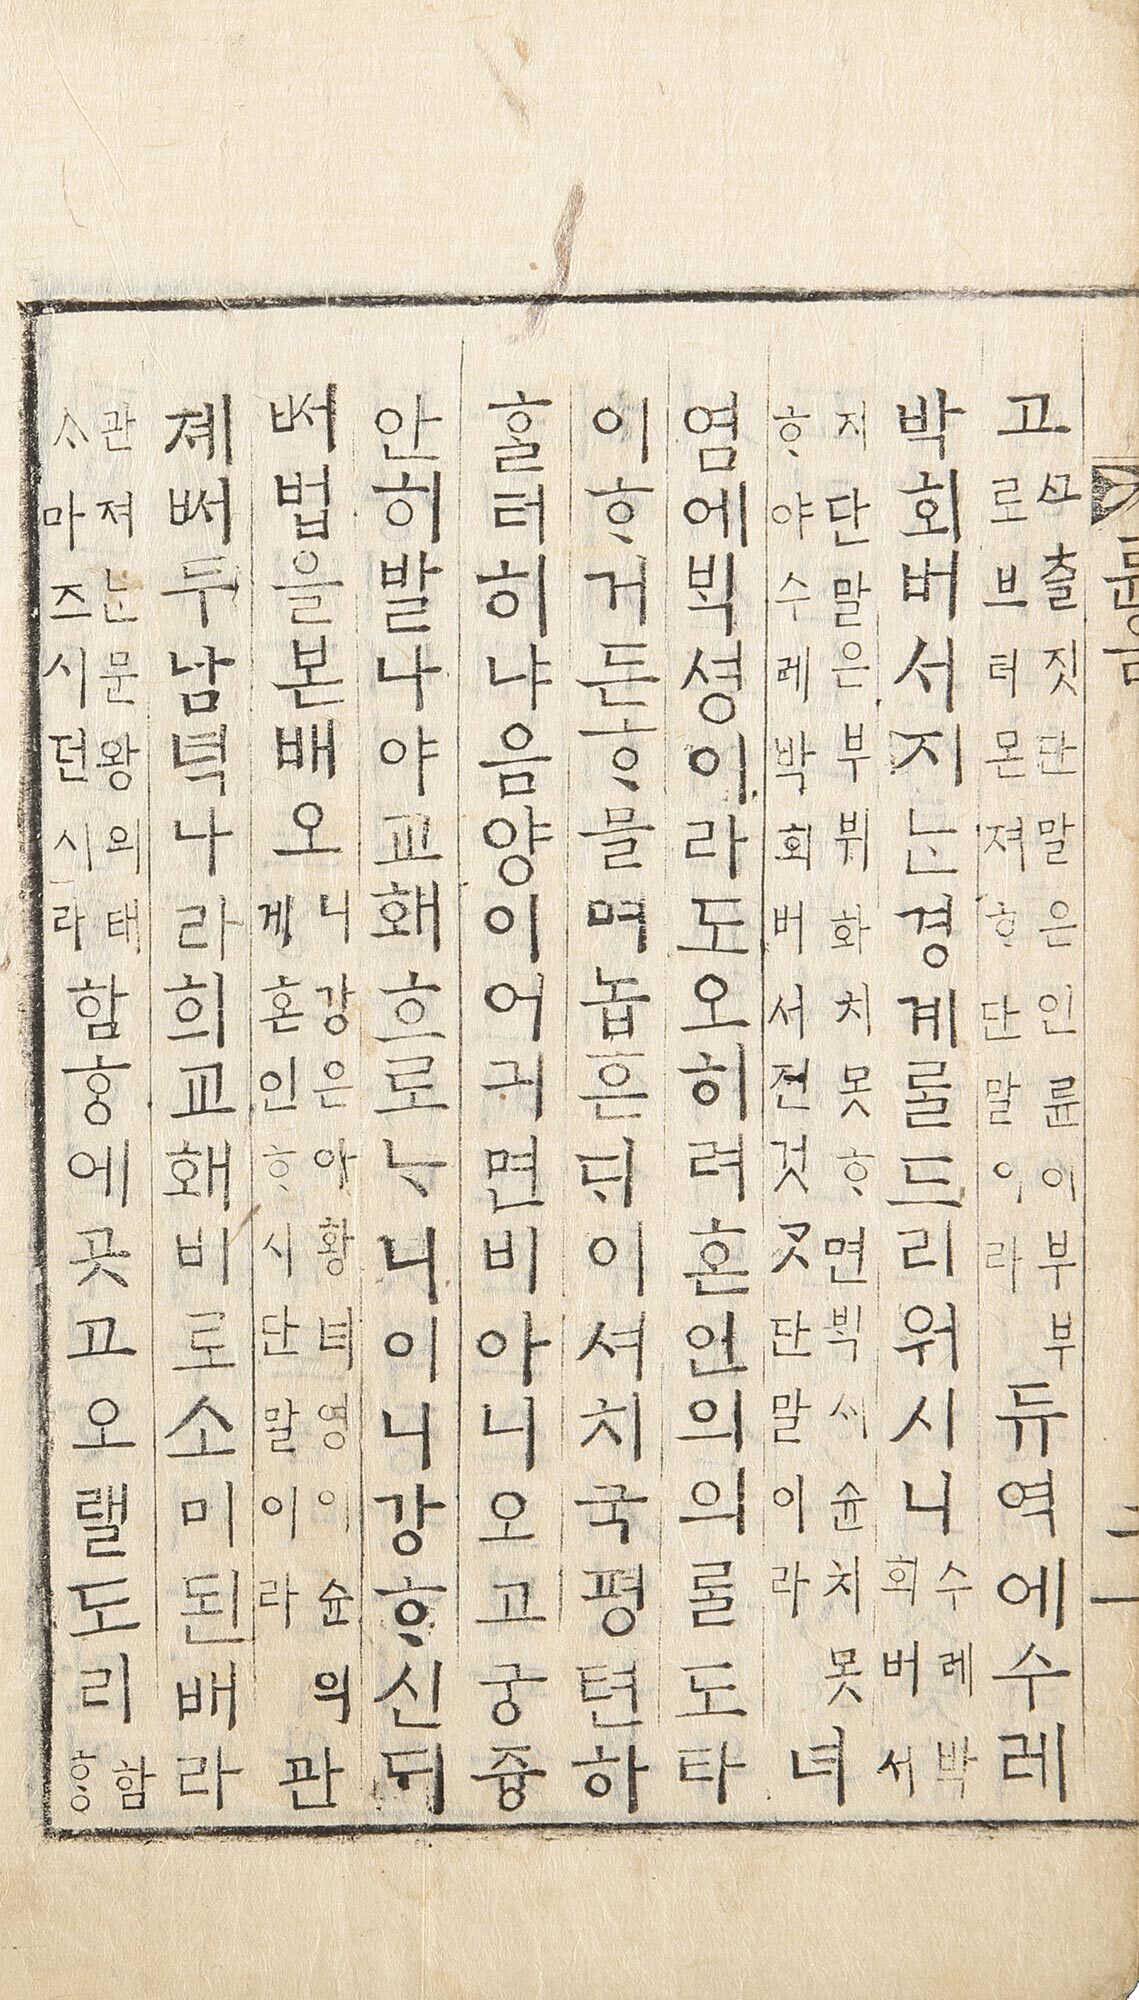 고
츌짓단말은인륜이부부
로브터몬져ᄒᆞ단말이라
듀역에수레
박회버서지ᄂᆞᆫ경계ᄅᆞᆯ드리워시니
수레박
회버서
지단말은부부뷔화치못ᄒᆞ면ᄇᆡᆨᄉᆡ슌치못
ᄒᆞ야수레박회버서젼것ᄀᆞᆺ단말이라
녀
염에ᄇᆡᆨ셩이라도오히려혼인의의ᄅᆞᆯ도타
이ᄒᆞ거든ᄒᆞ믈며놉흔ᄃᆡ이셔치국평텬하
ᄒᆞᆯ터히냐음양이어긔면비아니오고궁듕
안히발나야교홰흐로ᄂᆞ니이니강ᄒᆞ신ᄃᆡ
뻐법을본배오
니강은아황녀영이슌의
게혼인ᄒᆞ시단말이라
관
졔뻐두남턱나라희교홰비로소미된배라
관져ᄂᆞᆫ문왕의태
ᄉᆞ마즈시던시라
함ᄒᆞᆼ에곳고오랠도리
함
ᄒᆞᆼ